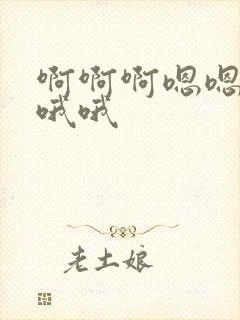 啊啊啊嗯嗯
哦哦
老土娘